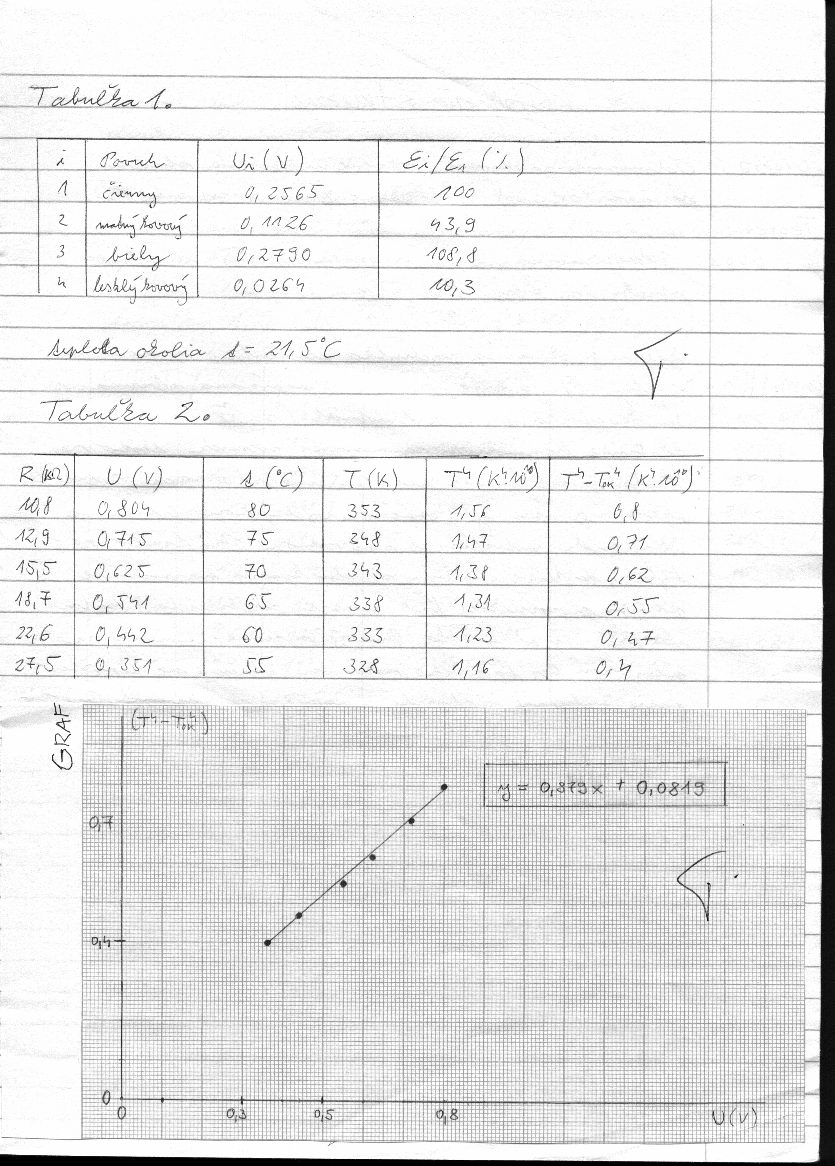 Tabuľka 1.
i Povrch Ui (V) Ei/E1 (%)
1 čierny 0,2565 100
2 matný kovový 0,1126 43,9
3 biely 0,2790 108,8
4 lesklý kovový 0,0264 10,3
teplota okolia t = 21,5°C
Tabuľka 2.
R (kΩ) U (V) t (°C) T (K) T⁴ (K⁴.10¹⁰) T⁴-Tok⁴ (K⁴.10¹⁰)
10,8 0,804 80 353 1,56 0,8
12,9 0,715 75 348 1,47 0,71
15,5 0,625 70 343 1,38 0,62
18,7 0,541 65 338 1,31 0,55
22,6 0,442 60 333 1,23 0,47
27,5 0,351 55 328 1,16 0,4
GRAF
(T⁴-Tok⁴)
y = 0,879x + 0,0819
0,7
0,4
0
0 0,3 0,5 0,8 U(V)